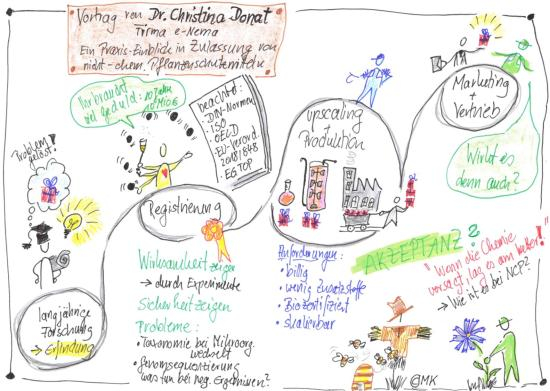 Vortrag von Dr. Christina Donat
Firma e-Nema
Ein Praxis-Einblick in Zulassung von
nicht-chem. Pflanzenschutzmitteln
Ihr braucht
viel Geduld: 10 Jahre
10 Mio €
beachte:
· DIN-Normen
· ISO
· OECD
· EU-Verord.
2018/848
· EG TOP
Problem
gelöst!
langjährige
Forschung
→ Erfindung
Registrierung
Wirksamkeit zeigen
→ durch Experimente
Sicherheit zeigen
Probleme:
• Taxonomie bei Mikroorg.
wechselt
• Genomsequenzierung
was tun bei neg. Ergebnissen?
Upscaling
+
Produktion
Anforderungen:
• billig
• wenig Zusatzstoffe
• Biozertifiziert
• skalierbar
Marketing
+
Vertrieb
Wirkt es
denn auch?
AKZEPTANZ?
"Wenn die Chemie
versagt, lag es am Wetter!"
→ Wie ist es bei NCP?
©MK